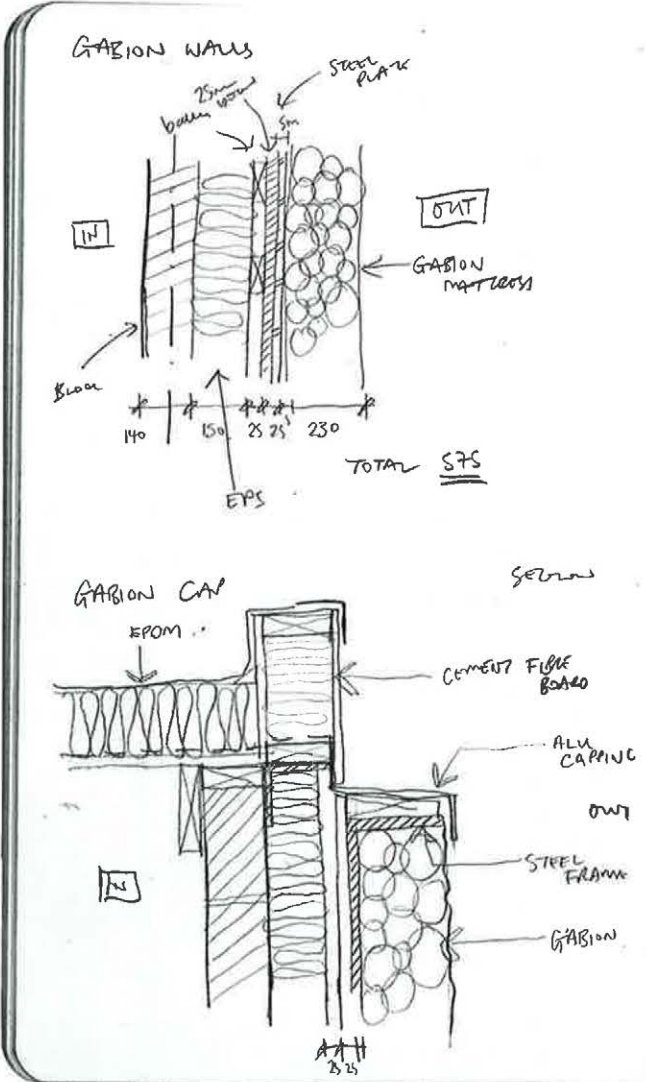 GABION WALLS
STEEL
PLATE
25mm
5m
IN
OUT
GABION
MATTRESS
BLOCK
140
150
25
25
5
230
TOTAL 575
EPS
GABION CAP
SECTION
EPDM
CEMENT FIBRE
BOARD
ALU
CAPPING
OUT
STEEL
FRAME
IN
GABION
25 25